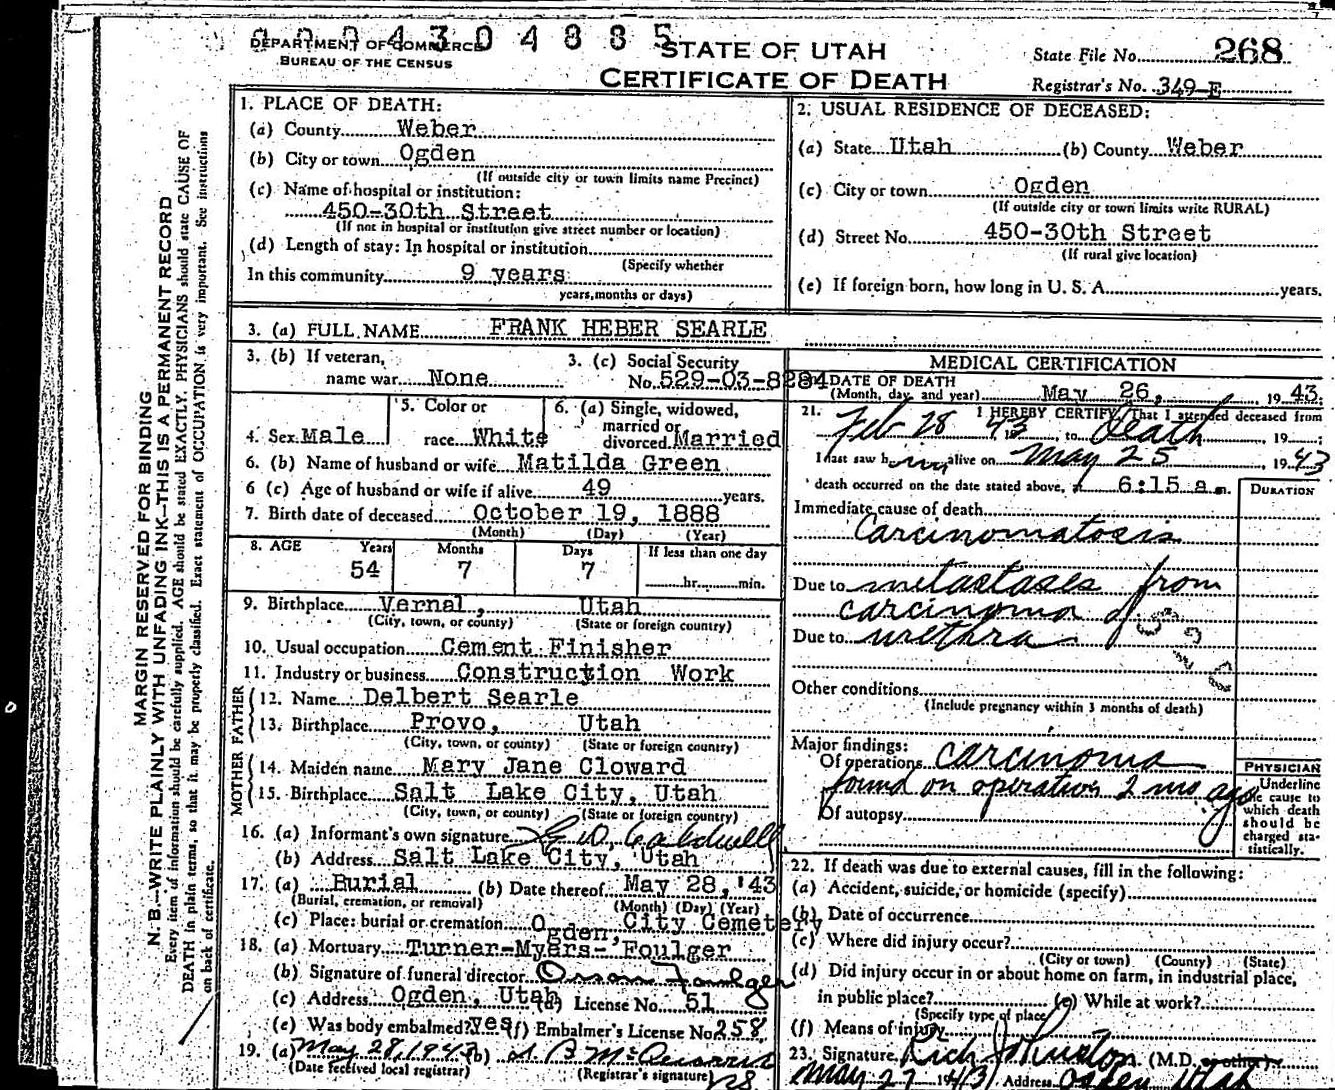 0 0 0 4 3 0 4 8 8 5
DEPARTMENT OF COMMERCE
BUREAU OF THE CENSUS
STATE OF UTAH
CERTIFICATE OF DEATH
State File No. 268
Registrar's No. 349-E
MARGIN RESERVED FOR BINDING
N. B.—WRITE PLAINLY WITH UNFADING INK—THIS IS A PERMANENT RECORD
Every item of information should be carefully supplied. AGE should be stated EXACTLY. PHYSICIANS should state CAUSE OF
DEATH in plain terms, so that it may be properly classified. Exact statement of OCCUPATION is very important. See instructions
on back of certificate.
1. PLACE OF DEATH:
(a) County Weber
(b) City or town Ogden
(If outside city or town limits name Precinct)
(c) Name of hospital or institution:
450-30th Street
(If not in hospital or institution give street number or location)
(d) Length of stay: In hospital or institution
(Specify whether
In this community 9 years
years, months or days)
2. USUAL RESIDENCE OF DECEASED:
(a) State Utah (b) County Weber
(c) City or town Ogden
(If outside city or town limits write RURAL)
(d) Street No. 450-30th Street
(If rural give location)
(e) If foreign born, how long in U. S. A. years.
3. (a) FULL NAME FRANK HEBER SEARLE
3. (b) If veteran,
name war None
3. (c) Social Security
No. 529-03-8284
4. Sex Male
5. Color or
race White
6. (a) Single, widowed,
married or
divorced Married
6. (b) Name of husband or wife Matilda Green
6 (c) Age of husband or wife if alive 49 years.
7. Birth date of deceased October 19, 1888
(Month) (Day) (Year)
8. AGE Years Months Days If less than one day
54 7 7 hr. min.
9. Birthplace Vernal, Utah
(City, town, or county) (State or foreign country)
10. Usual occupation Cement Finisher
11. Industry or business Construction Work
FATHER
12. Name Delbert Searle
13. Birthplace Provo, Utah
(City, town, or county) (State or foreign country)
MOTHER
14. Maiden name Mary Jane Cloward
15. Birthplace Salt Lake City, Utah
(City, town, or county) (State or foreign country)
16. (a) Informant's own signature Caldwell
(b) Address Salt Lake City, Utah
17. (a) Burial (b) Date thereof May 28, '43
(Burial, cremation, or removal) (Month) (Day) (Year)
(c) Place: burial or cremation Ogden City Cemetery
18. (a) Mortuary Turner-Myers-Foulger
(b) Signature of funeral director Orson Foulger
(c) Address Ogden, Utah (d) License No. 51
(e) Was body embalmed? yes (f) Embalmer's License No. 258
19. (a) May 28, 1943 (b)
(Date received local registrar) (Registrar's signature)
MEDICAL CERTIFICATION
DATE OF DEATH
(Month, day, and year) May 26, 19 43;
21. I HEREBY CERTIFY, That I attended deceased from
Feb 28 43, to Death, 19 ;
I last saw him alive on May 25, 19 43
death occurred on the date stated above, 6:15 a m.
DURATION
Immediate cause of death
Carcinomatosis
Due to metastases from
carcinoma of
Due to urethra
Other conditions
(Include pregnancy within 3 months of death)
Major findings:
Of operations carcinoma
found on operation 2 mo ago
Of autopsy
PHYSICIAN
Underline
the cause to
which death
should be
charged sta-
tistically.
22. If death was due to external causes, fill in the following:
(a) Accident, suicide, or homicide (specify)
(b) Date of occurrence
(c) Where did injury occur?
(City or town) (County) (State)
(d) Did injury occur in or about home on farm, in industrial place,
in public place? (e) While at work?
(Specify type of place)
(f) Means of injury
23. Signature Rich Johnston (M.D. or other)
May 27 1943 Address Ogden Utah